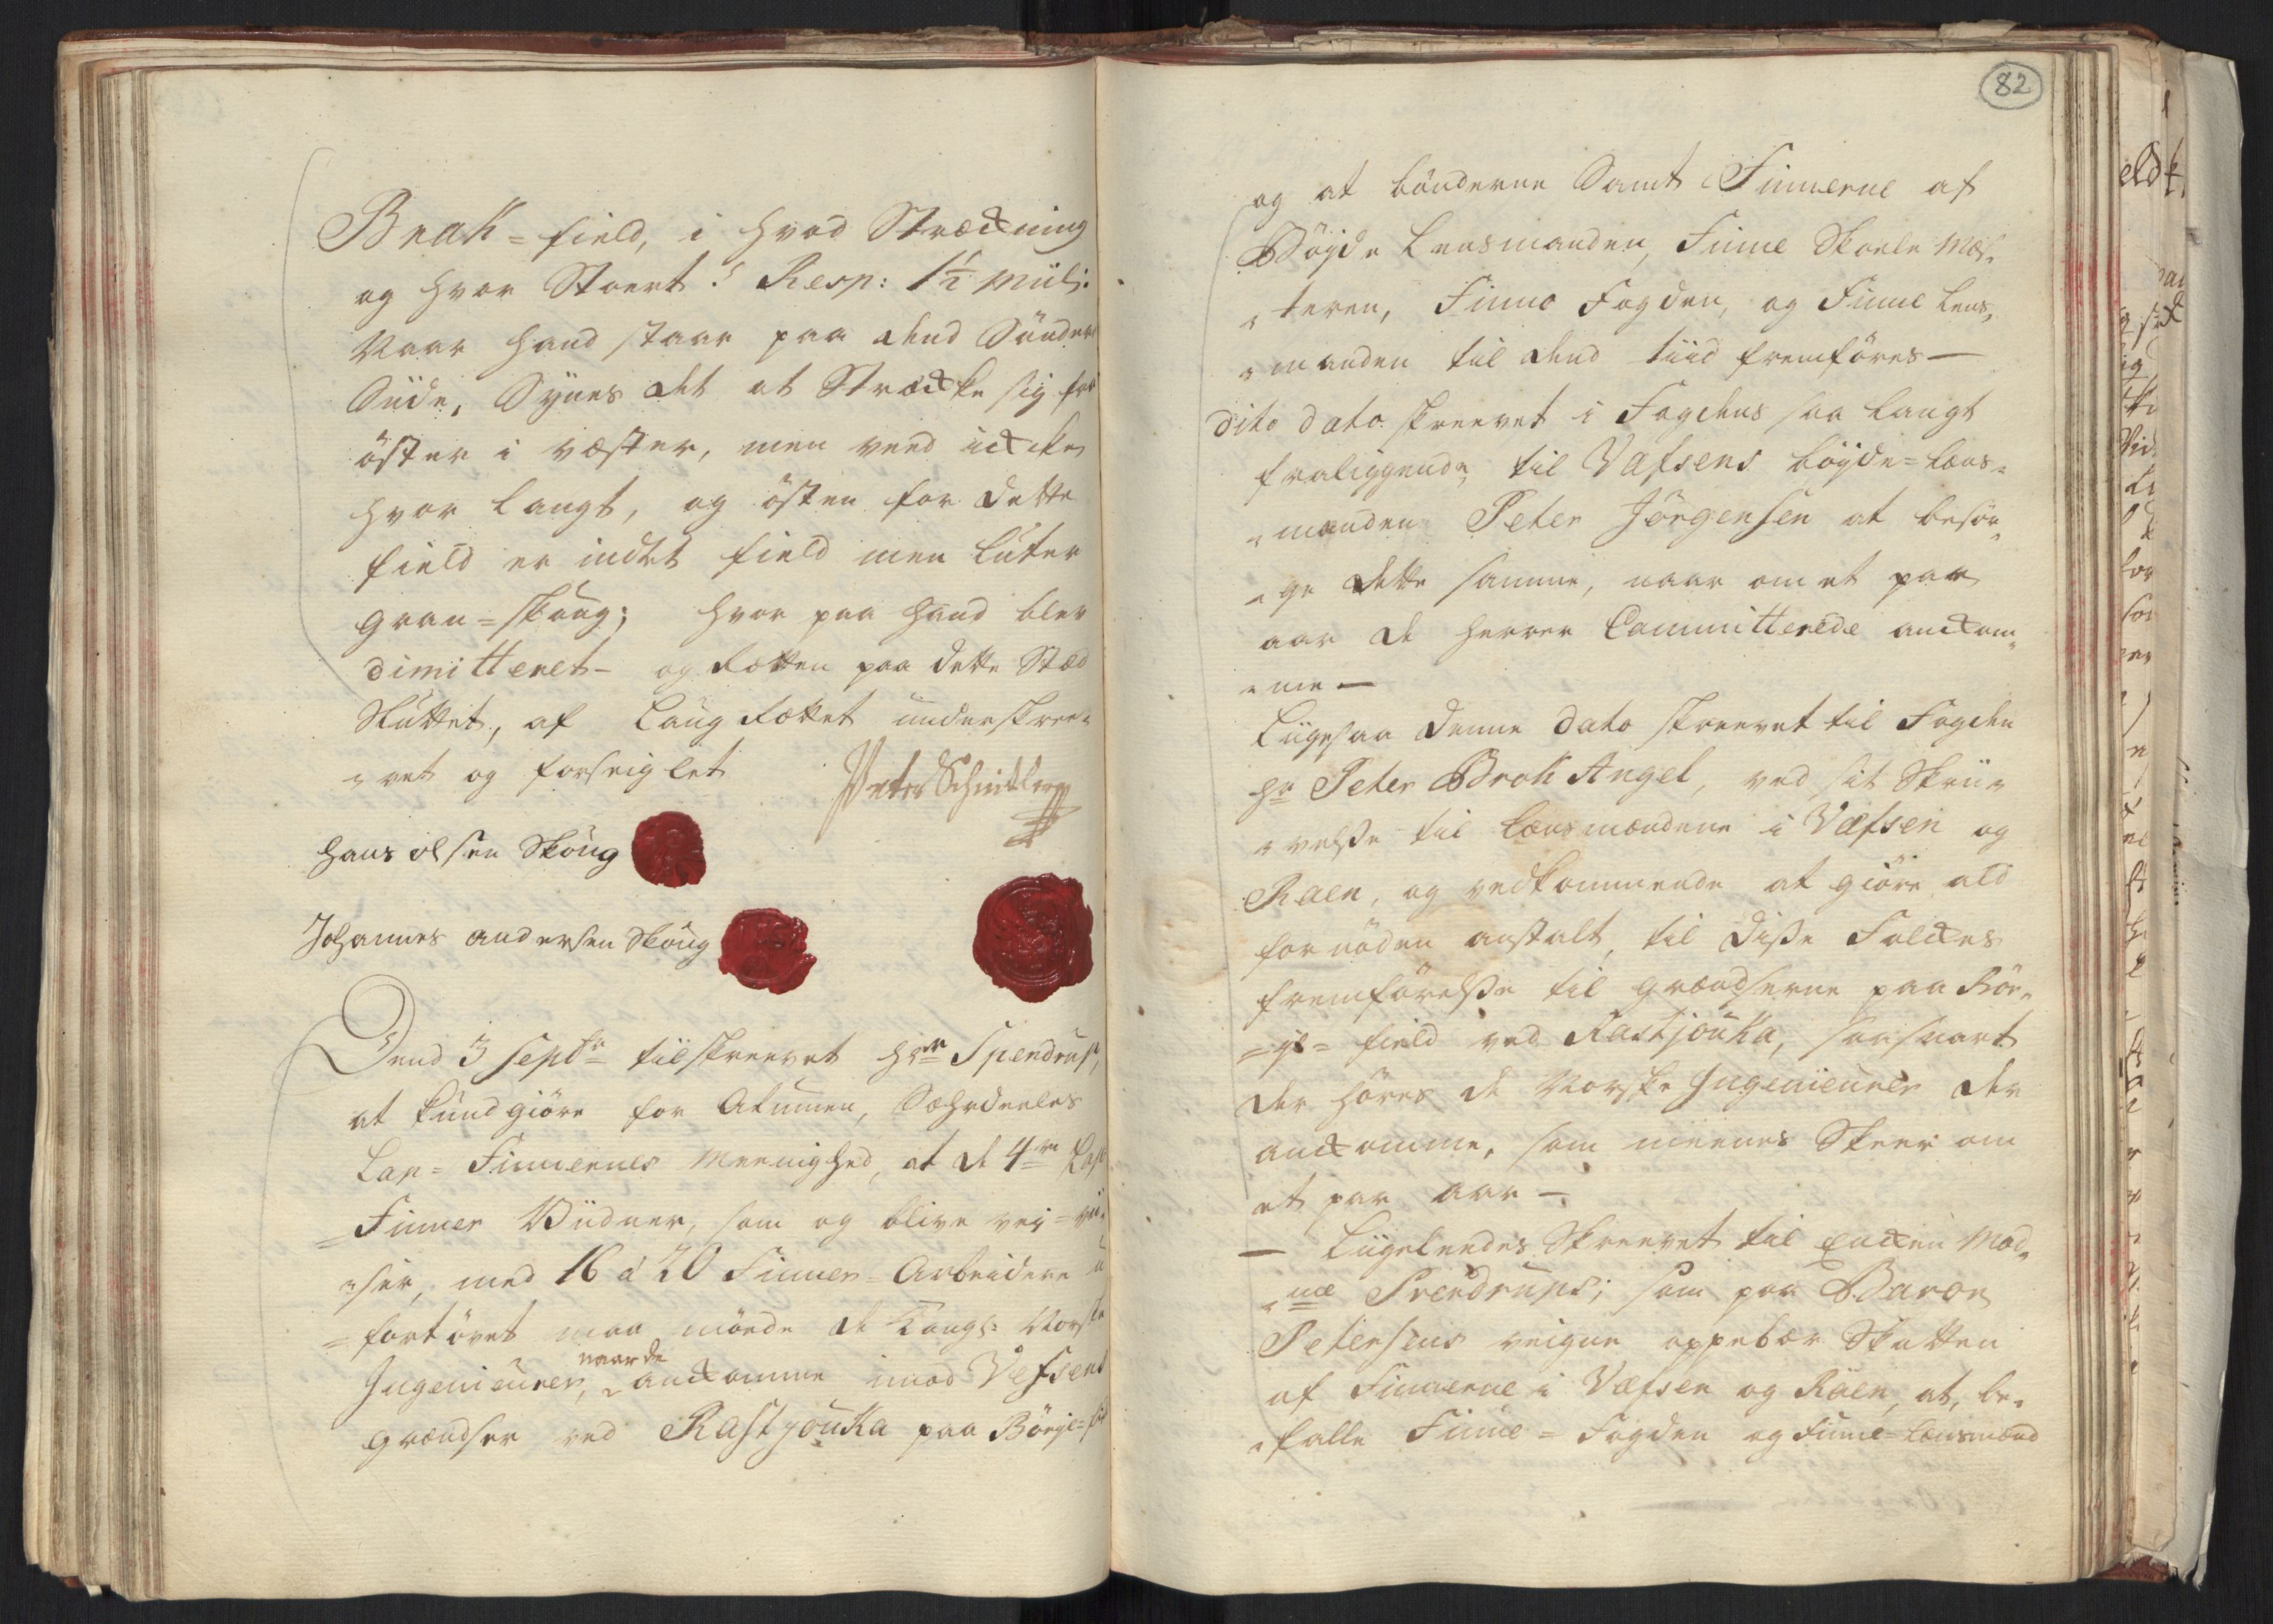 Brak-field, i hvad Strækning
og hvor Stoert? Resp: 1½ Miil;
Naar hand staar paa dend Söndere
Siide, Synes det at Strække sig fra
öster i væster, men veed icke
hvor langt, og östen for dette
field er indtet field men luter
gran-skoug; hvor paa hand blev
dimitteret - og Rætten paa dette Stæd
Sluttet, af Laug Rættet underskree-
-vet og forseiglet
Peter Schnitler
Hans olsen Skoug
Johannes andersen Skoug
Dend 3 Septbr tilskreevet Hrr Spendrup,
at kundgiöre for Lap-Finnernes Meenighed, at de 4re Lap
-Finner Viidner, som og blive vei-vii-
-ser, med 16 a 20 Finner-Arbeidere
-fortövet maa möede de Kongl: Norske
Ingenieurer, naar de ankomme imod Vefsens
grændser ved Rastjouka paa Börje-
82
og at bönderne Samt Finnerne af
Böyde Lensmanden, Finne Skoele Mes-
-teren, Finne Fogden, og Finne Lens-
-manden til dend tiid fremföres -
dito dato skreevet i Fogdens saa langt
fraliggende, til Vefsens böyde-læns-
-manden Peter Jörgensen at besör-
-ge dette samme, naar om et par
aar de Herrer Committerede ankom-
-me -
Liigesaa denne dato skreevet til Fogden
Hr Peter Brok Angel, ved sit Skrii-
-velsse til Lænsmændene i Væfsen og
Raen, og vedkommende at giöre ald
fornöden anstalt, til disse Folkes
fremförelsse til grændserne paa Bör-
-ge-field ved Rastjouka, saa snart
der höres de Norske Ingenieurer der
ankomme, som meenes Skeer om
et par aar -
- Liigeleedes Skreevet til Enken Mad-
-me Prendrups; som paa Baron
Petersens veigne oppebær Skatten
af Finnerne i Væfsen og Raen, at be-
-falle Finne-Fogden og Finne-Lænsmænd